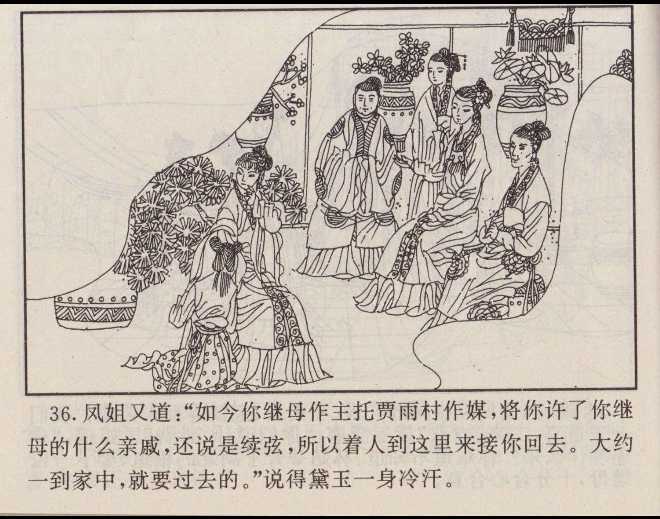 36. 凤姐又道：“如今你继母作主托贾雨村作媒，将你许了你继
母的什么亲戚，还说是续弦，所以着人到这里来接你回去。大约
一到家中，就要过去的。”说得黛玉一身冷汗。